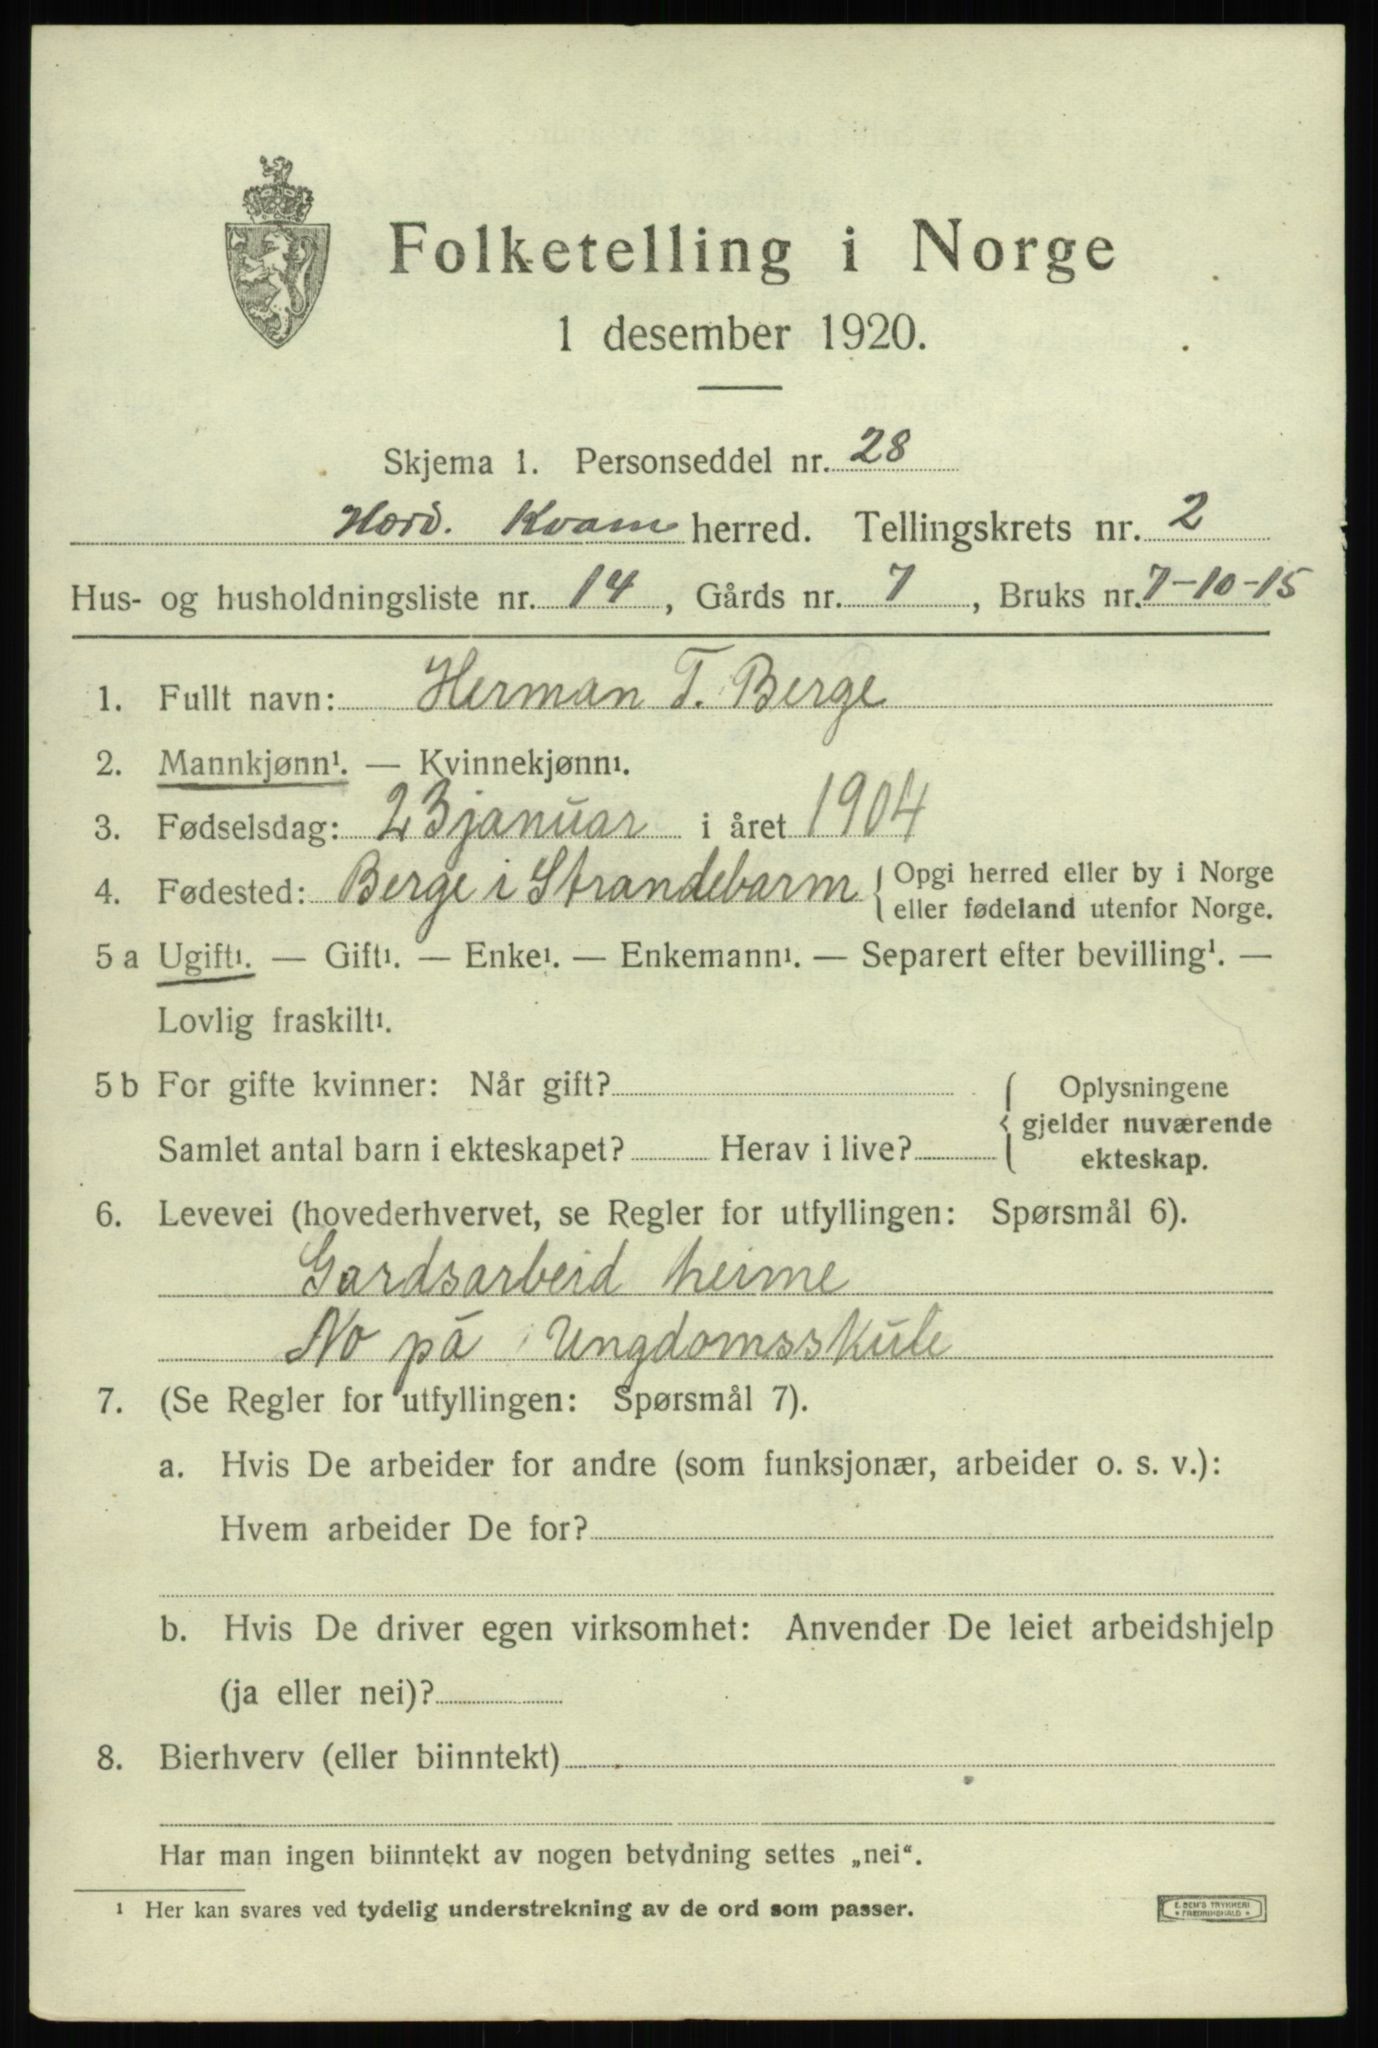 Folketelling i Norge
1 desember 1920.
Skjema 1. Personseddel nr. 28
Hord. Kvam herred. Tellingskrets nr. 2
Hus- og husholdningsliste nr. 14, Gårds nr. 7, Bruks nr. 7-10-15
1. Fullt navn: Herman T. Berge
2. Mannkjønn¹. — Kvinnekjønn¹.
3. Fødselsdag: 23 januar i året 1904
4. Fødested: Berge i Strandebarm { Opgi herred eller by i Norge
eller fødeland utenfor Norge.
5 a Ugift¹. — Gift¹. — Enke¹. — Enkemann¹. — Separert efter bevilling¹. —
Lovlig fraskilt¹.
5 b For gifte kvinner: Når gift? { Oplysningene
gjelder nuværende
Samlet antal barn i ekteskapet? Herav i live? ekteskap.
6. Levevei (hovederhvervet, se Regler for utfyllingen: Spørsmål 6).
Gardsarbeid heime
No på Ungdomsskule
7. (Se Regler for utfyllingen: Spørsmål 7).
a. Hvis De arbeider for andre (som funksjonær, arbeider o. s. v.):
Hvem arbeider De for?
b. Hvis De driver egen virksomhet: Anvender De leiet arbeidshjelp
(ja eller nei)?
8. Bierhverv (eller biinntekt)
Har man ingen biinntekt av nogen betydning settes „nei“.
¹ Her kan svares ved tydelig understrekning av de ord som passer.
E. SEM'S TRYKKERI
* FREDRIKSHALD *